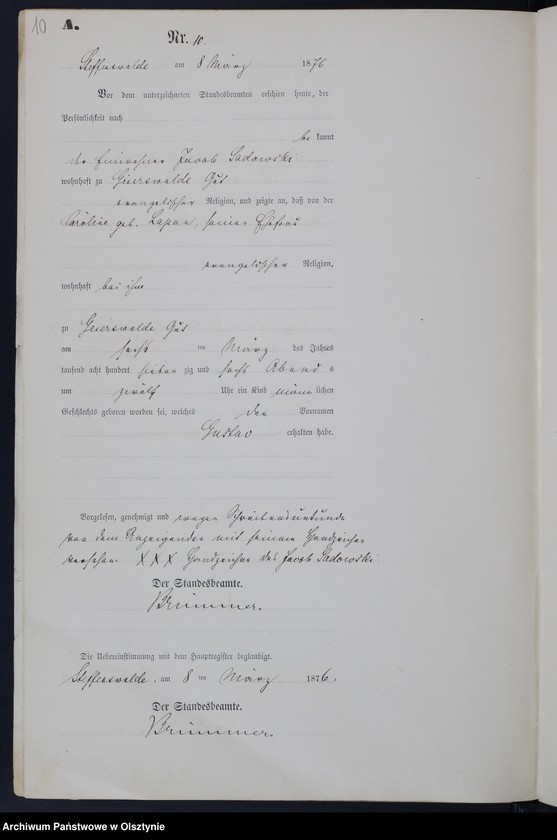 10
A.
Nr. 10.
Steffenswalde am 8 März 1876
Vor dem unterzeichneten Standesbeamten erschien heute, der
Persönlichkeit nach
bekannt
der Einwohner Jacob Sadowski
wohnhaft zu Geierswalde Gut
evangelischer Religion, und zeigte an, daß von der
Caroline geb. Lapan, seiner Ehefrau
evangelischer Religion,
wohnhaft bei ihm
zu Geierswalde Gut
am sechs ten März des Jahres
tausend acht hundert sieben zig und sechs Abends
um zwölf Uhr ein Kind männlichen
Geschlechts geboren worden sei, welches den Vornamen
Gustav erhalten habe.
Vorgelesen, genehmigt und wegen Schreibensunkunde
von dem Anzeigenden mit seinem Handzeichen
versehen. XXX Handzeichen des Jacob Sadowski.
Der Standesbeamte.
Brümmer.
Die Uebereinstimmung mit dem Hauptregister beglaubigt.
Steffenswalde, am 8 ten März 1876.
Der Standesbeamte.
Brümmer.
Archiwum Państwowe w Olsztynie